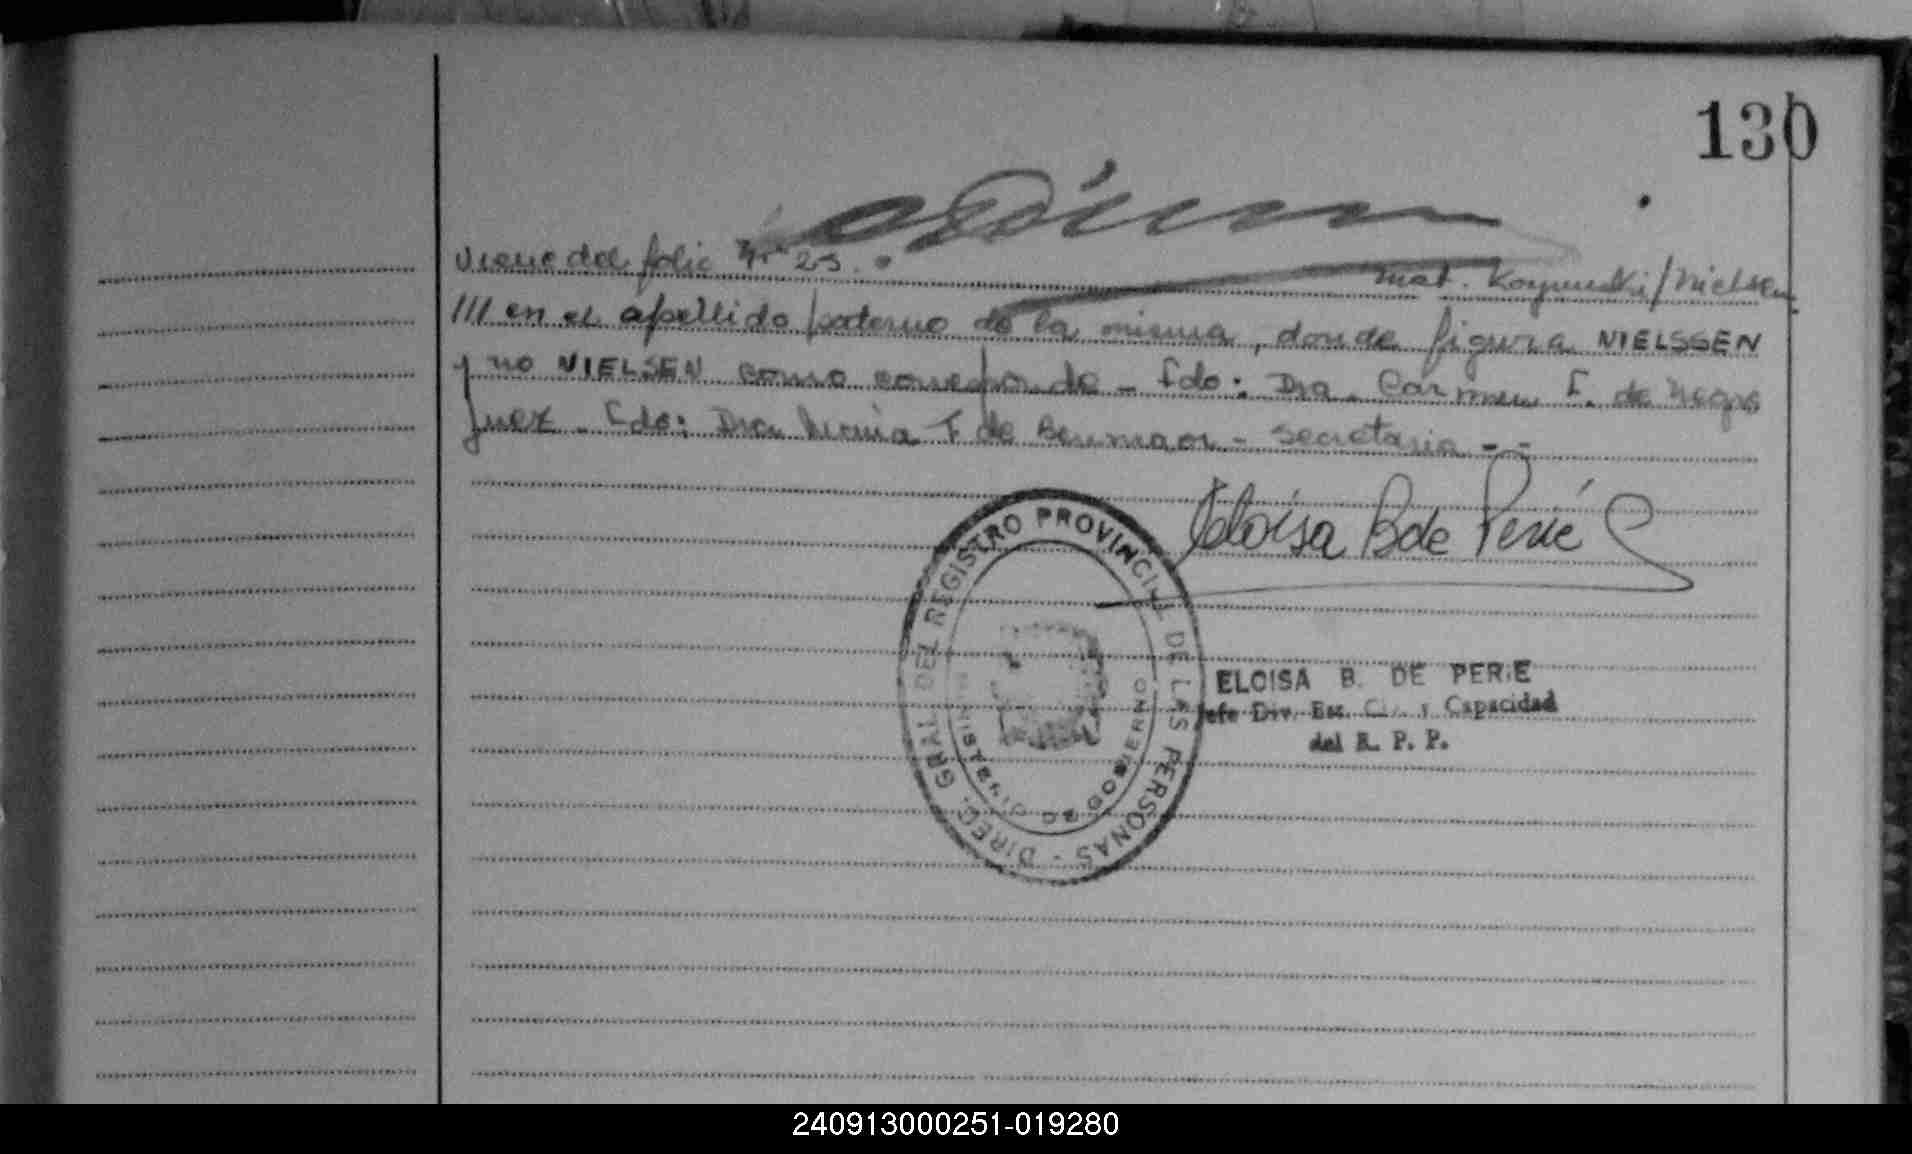 130
Viene del folio Nº 23.
Mat. /Nielsen
/// en el apellido paterno de la misma, donde figura NIELSSEN
y no NIELSEN como corresponde - Fdo: Dra. Carmen F. de Negro
Juez - Fdo: Dra. Maria F de - Secretaria - -
Eloisa B de Perié
DIREC. GRAL DEL REGISTRO PROVINCIAL DE LAS PERSONAS -
DE GOBIERNO
ELOISA B. DE PERIE
Jefe Div. Civ. y Capacidad
del R. P. P.
240913000251-019280